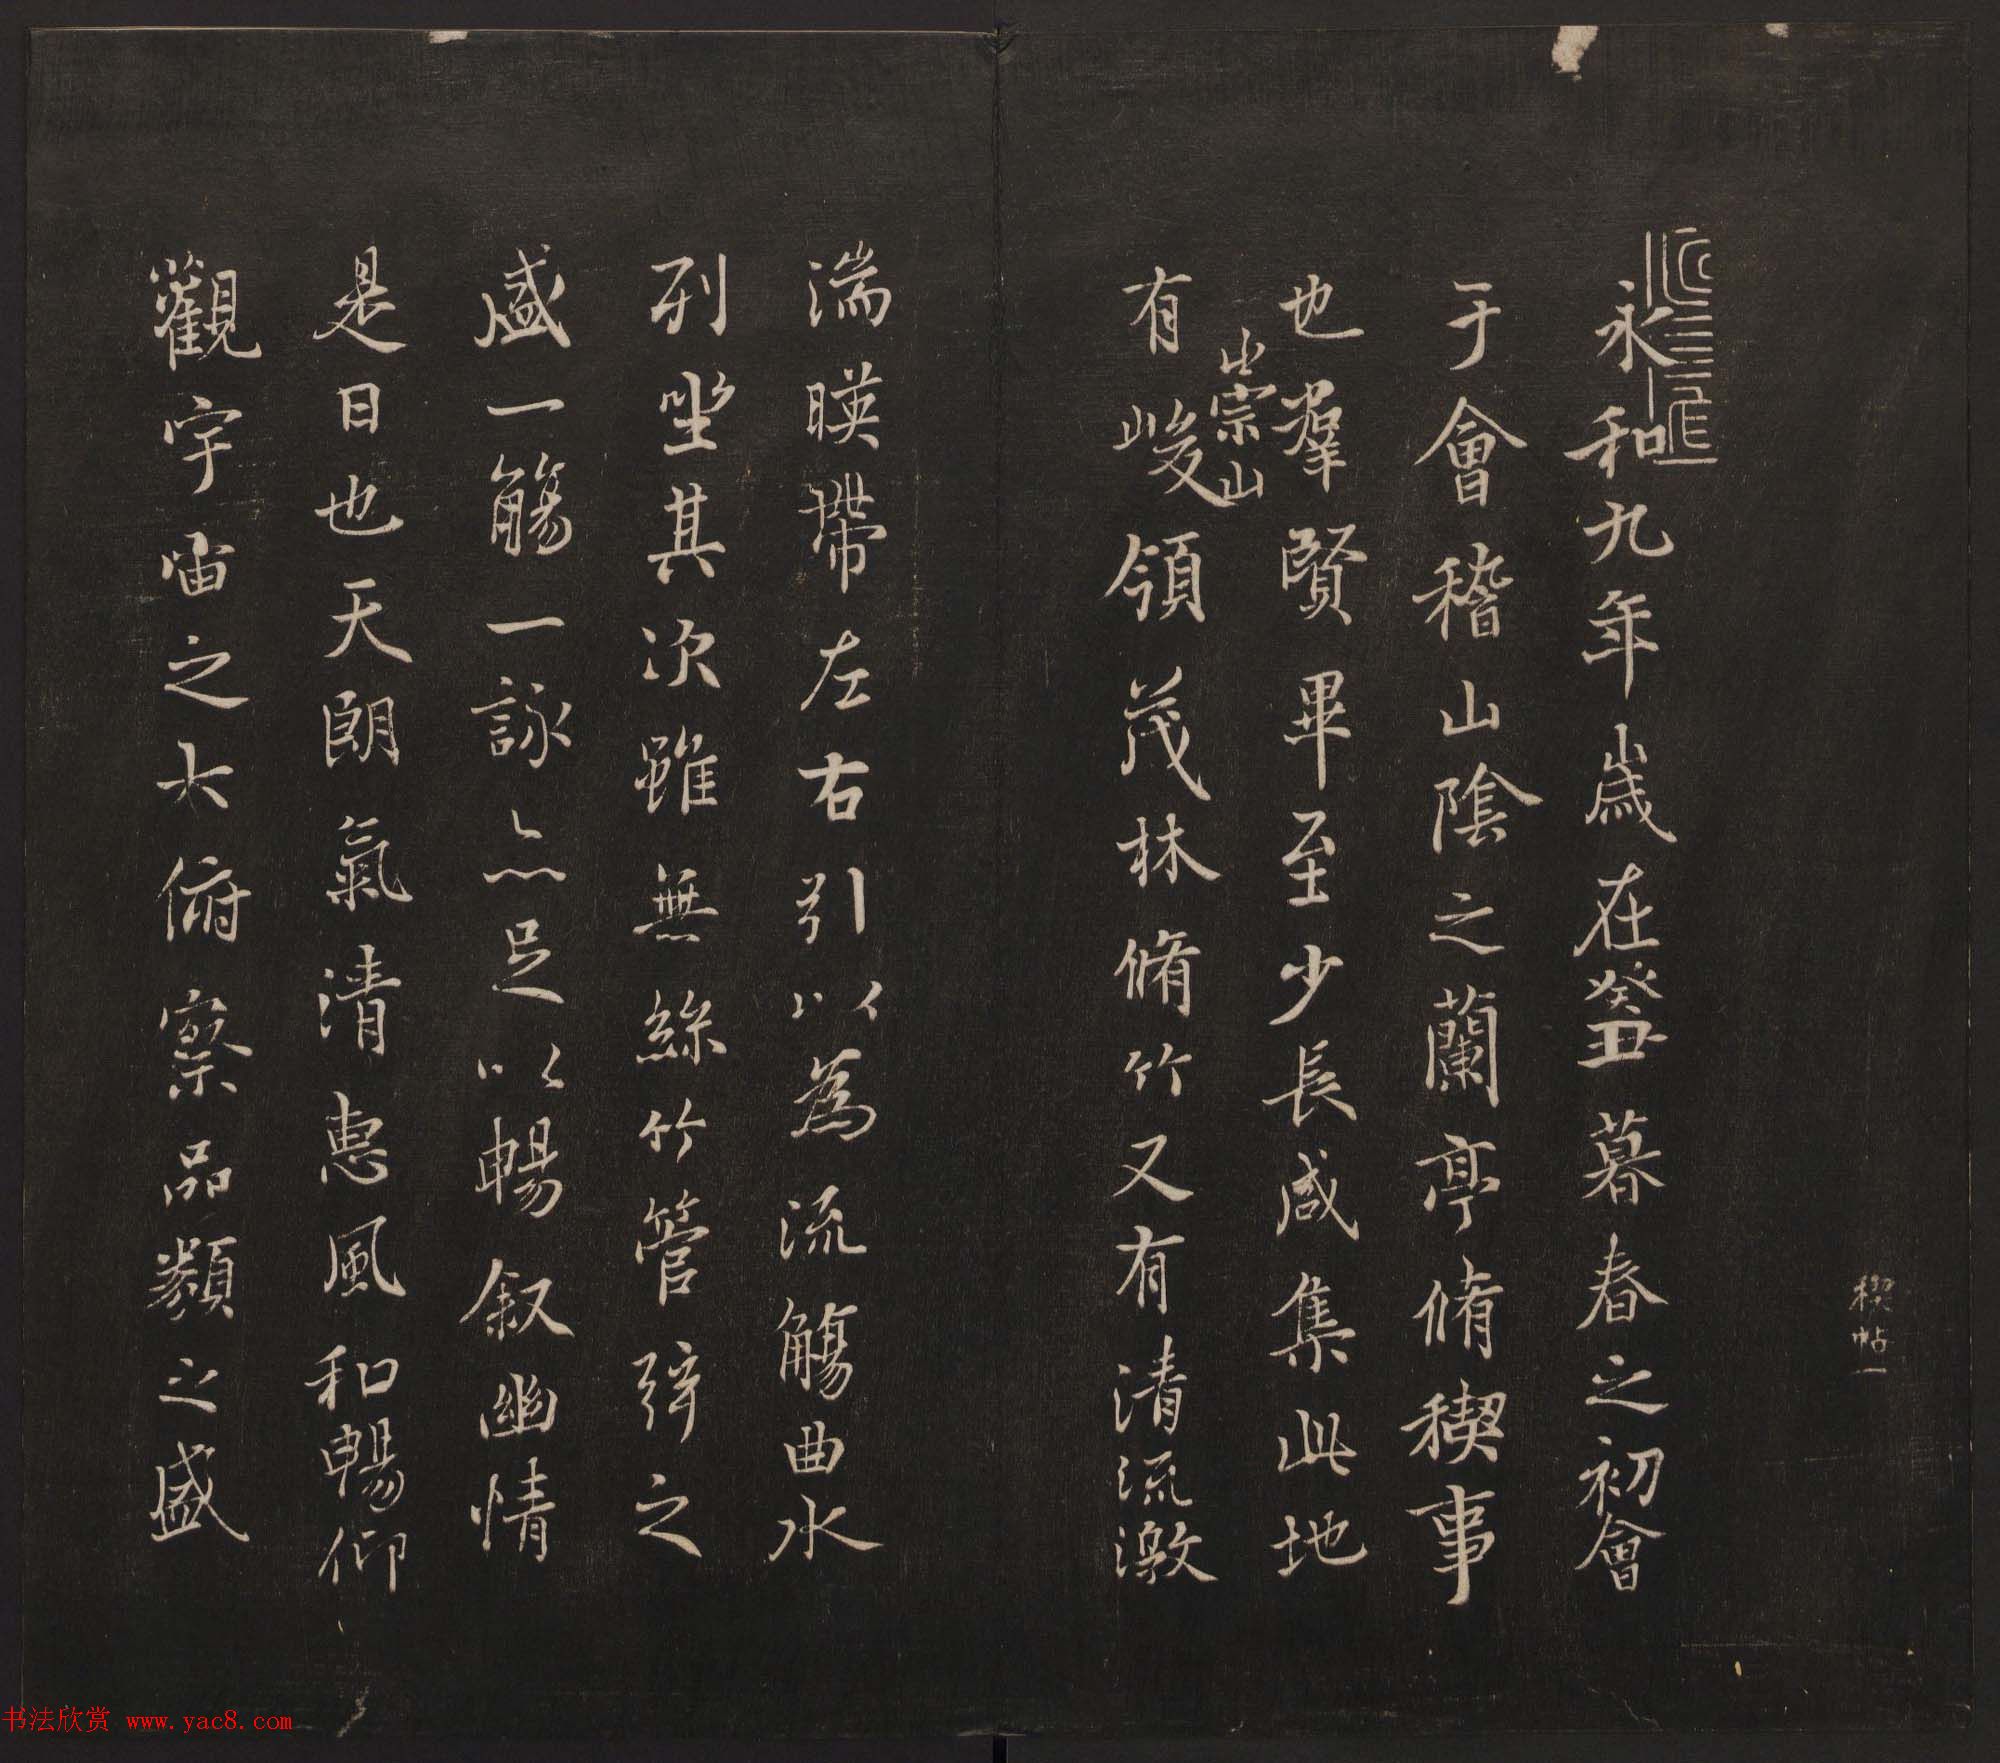 稧帖一
永和九年歲在癸丑暮春之初會
于會稽山陰之蘭亭脩稧事
也羣賢畢至少長咸集此地
有崇山峻領茂林脩竹又有清流激
湍暎帶左右引以為流觴曲水
列坐其次雖無絲竹管弦之
盛一觴一詠亦足以暢叙幽情
是日也天朗氣清惠風和暢仰
觀宇宙之大俯察品類之盛
书法欣赏 www.yac8.com